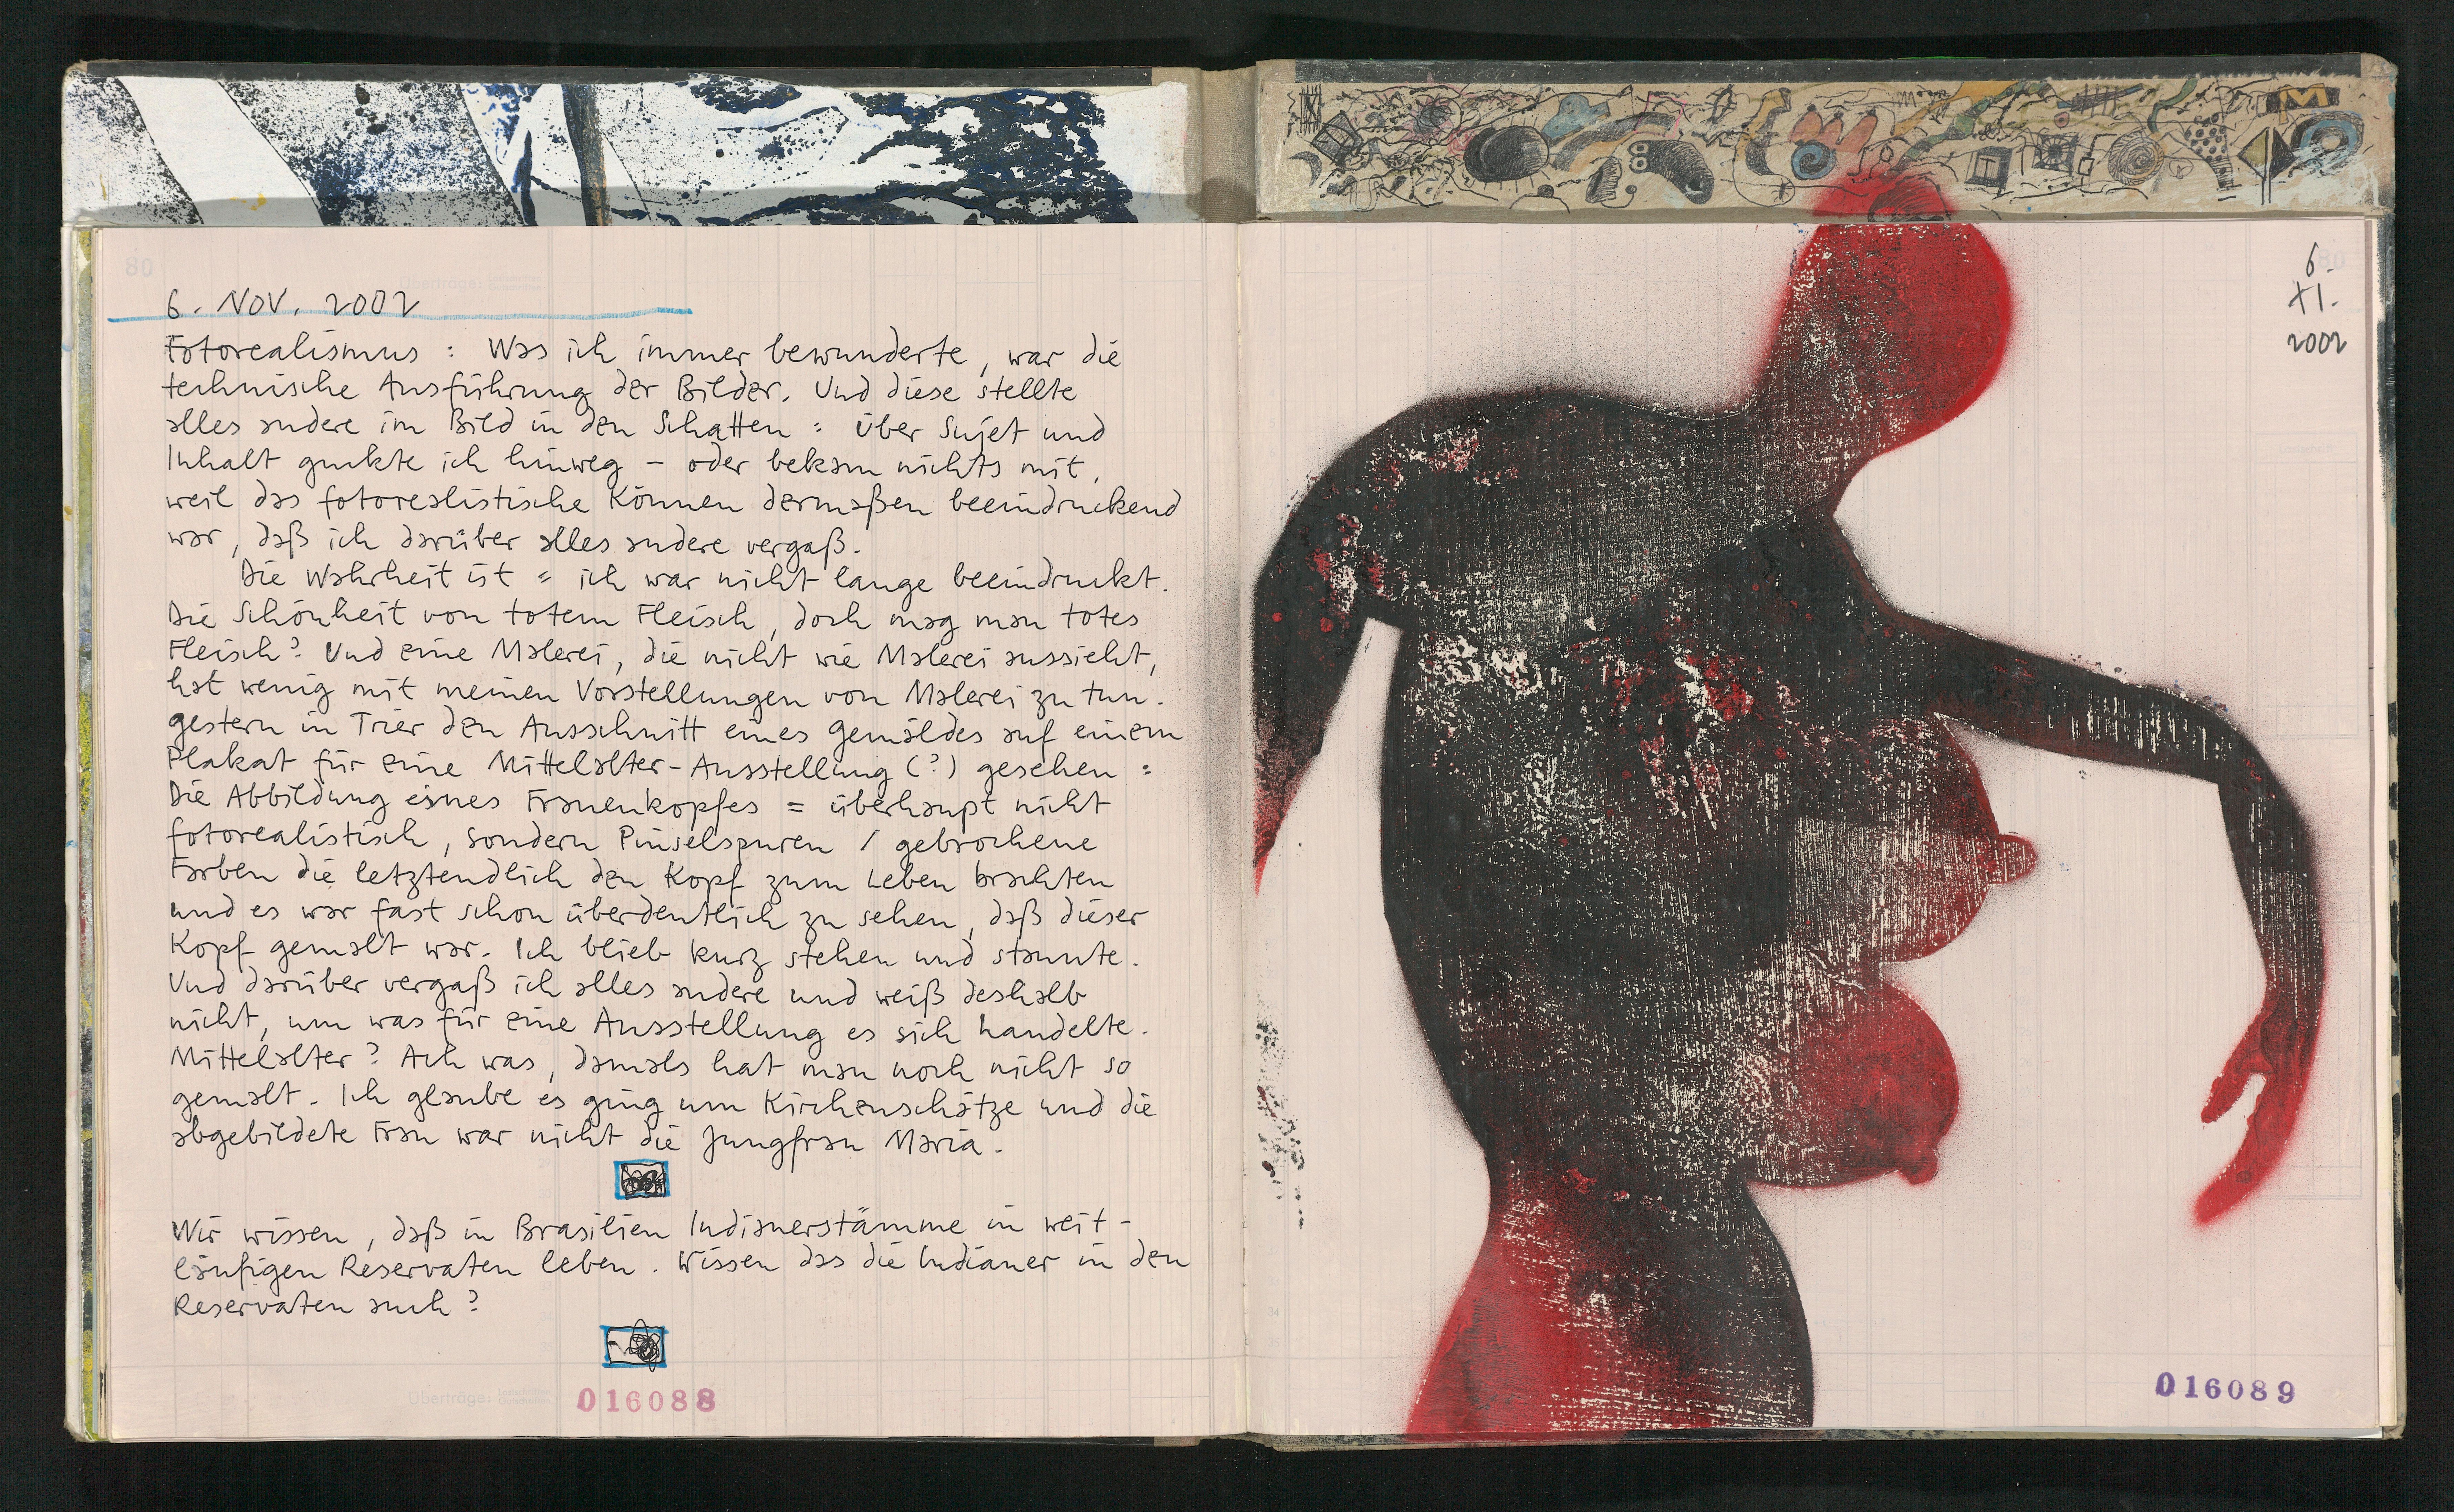 80
Überträge:
6. NOV. 2002
Fotorealismus : Was ich immer bewunderte, war die
technische Ausführung der Bilder. Und diese stellte
alles andere im Bild in den Schatten : über Sujet und
Inhalt guckte ich hinweg – oder bekam nichts mit,
weil das fotorealistische Können dermaßen beeindruckend
war, daß ich darüber alles andere vergaß.
Die Wahrheit ist = ich war nicht lange beeindruckt.
Die Schönheit von totem Fleisch, doch mag man totes
Fleisch? Und eine Malerei, die nicht wie Malerei aussieht,
hat wenig mit meinen Vorstellungen von Malerei zu tun.
gestern in Trier den Ausschnitt eines Gemäldes auf einem
Plakat für eine Mittelalter-Ausstellung (?) gesehen :
Die Abbildung eines Frauenkopfes = überhaupt nicht
fotorealistisch, sondern Pinselspuren / gebrochene
Farben die letztendlich den Kopf zum Leben brachten
und es war fast schon überdeutlich zu sehen, daß dieser
Kopf gemalt war. Ich blieb kurz stehen und staunte.
Und darüber vergaß ich alles andere und weiß deshalb
nicht, um was für eine Ausstellung es sich handelte.
Mittelalter? Ach was, damals hat man noch nicht so
gemalt. Ich glaube es ging um Kirchenschätze und die
abgebildete Frau war nicht die Jungfrau Maria.
Wir wissen, daß in Brasilien Indianerstämme in weit-
läufigen Reservaten leben. Wissen das die Indianer in den
Reservaten auch?
Überträge:
016088
M
6.
XI.
2002
016089